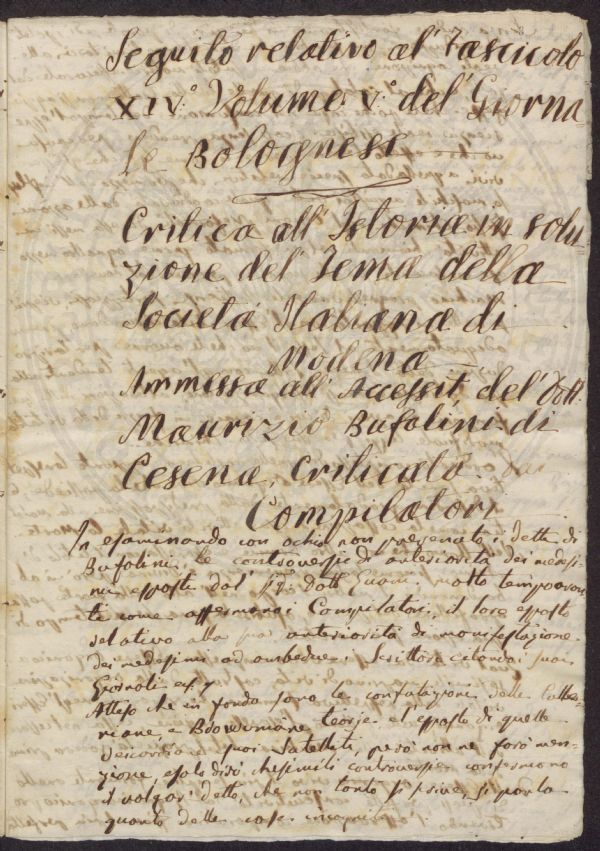 Seguito relativo al' Fascicolo
XIV.° Volume V.° del' Giorna
le Bolognese
Critica all' Istoria in solu-
zione del' Tema della
Società Italiana di
Modena
Ammessa all' Accessit, del' Dott.
Maurizio Bufalini di
Cesena, Criticata dai
Compilatori
In esaminando con ochio non prevenuto i detti di
Bufalini, le controversie di anteriorità dei medesi-
mi esposte dal' Sig. Dott. Guani, molto tempo avan-
ti come affermano i Compilatori, il loro esposto
relativo alla anteriorità di manifestazione
dei medesimi ad ambedue i Scrittori citando i suoi
Giornali
Atteso che in fondo sono le confutazioni delle
e Browniane teorie e l'esposto di quelle
suoi Satelliti, però non ne farò men-
zione, e solo dirò che simili controversie confermano
il volgar' detto, che non tanto si scrive, si parla
quanto delle cose incognite